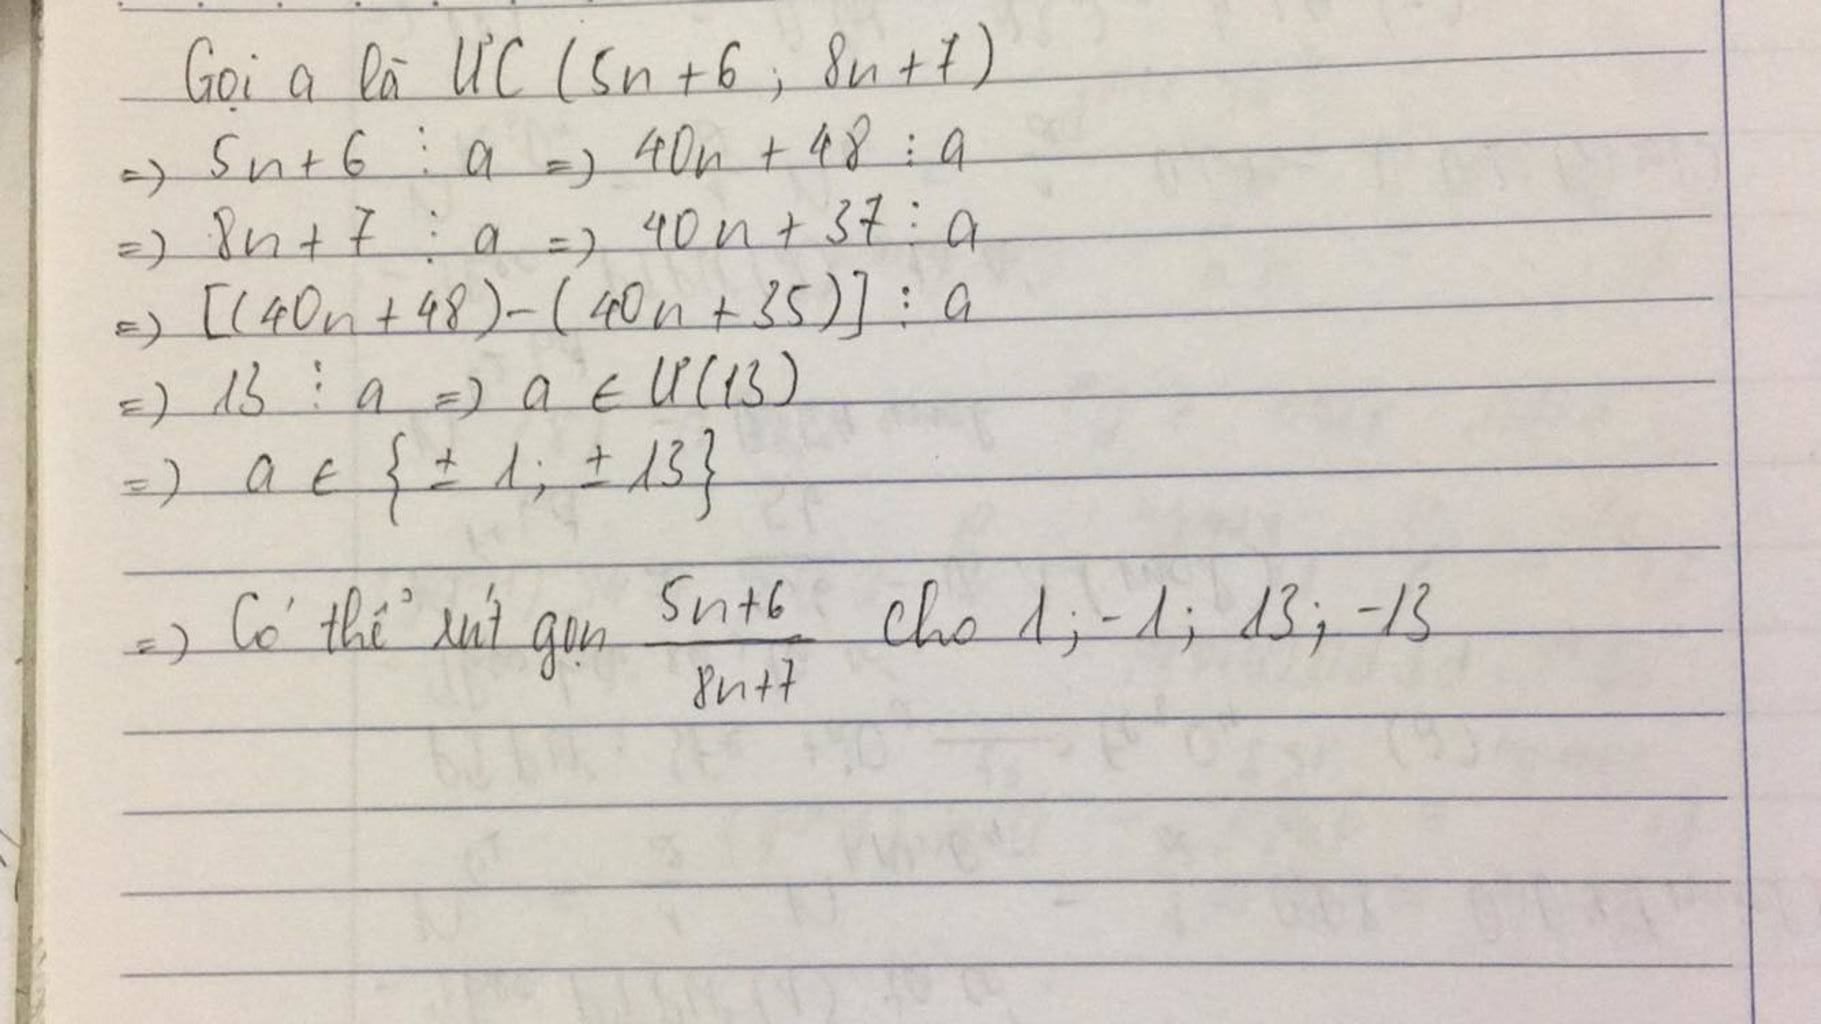 Gọi a là ƯC (5n+6; 8n+7)
=> 5n+6 ⋮ a => 40n + 48 ⋮ a
=> 8n+7 ⋮ a => 40n + 37 ⋮ a
=> [(40n+48)-(40n+35)] ⋮ a
=> 13 ⋮ a => a ∈ Ư(13)
=> a ∈ {± 1; ± 13}
=> Có thể rút gọn \frac{5n+6}{8n+7} cho 1; -1; 13; -13